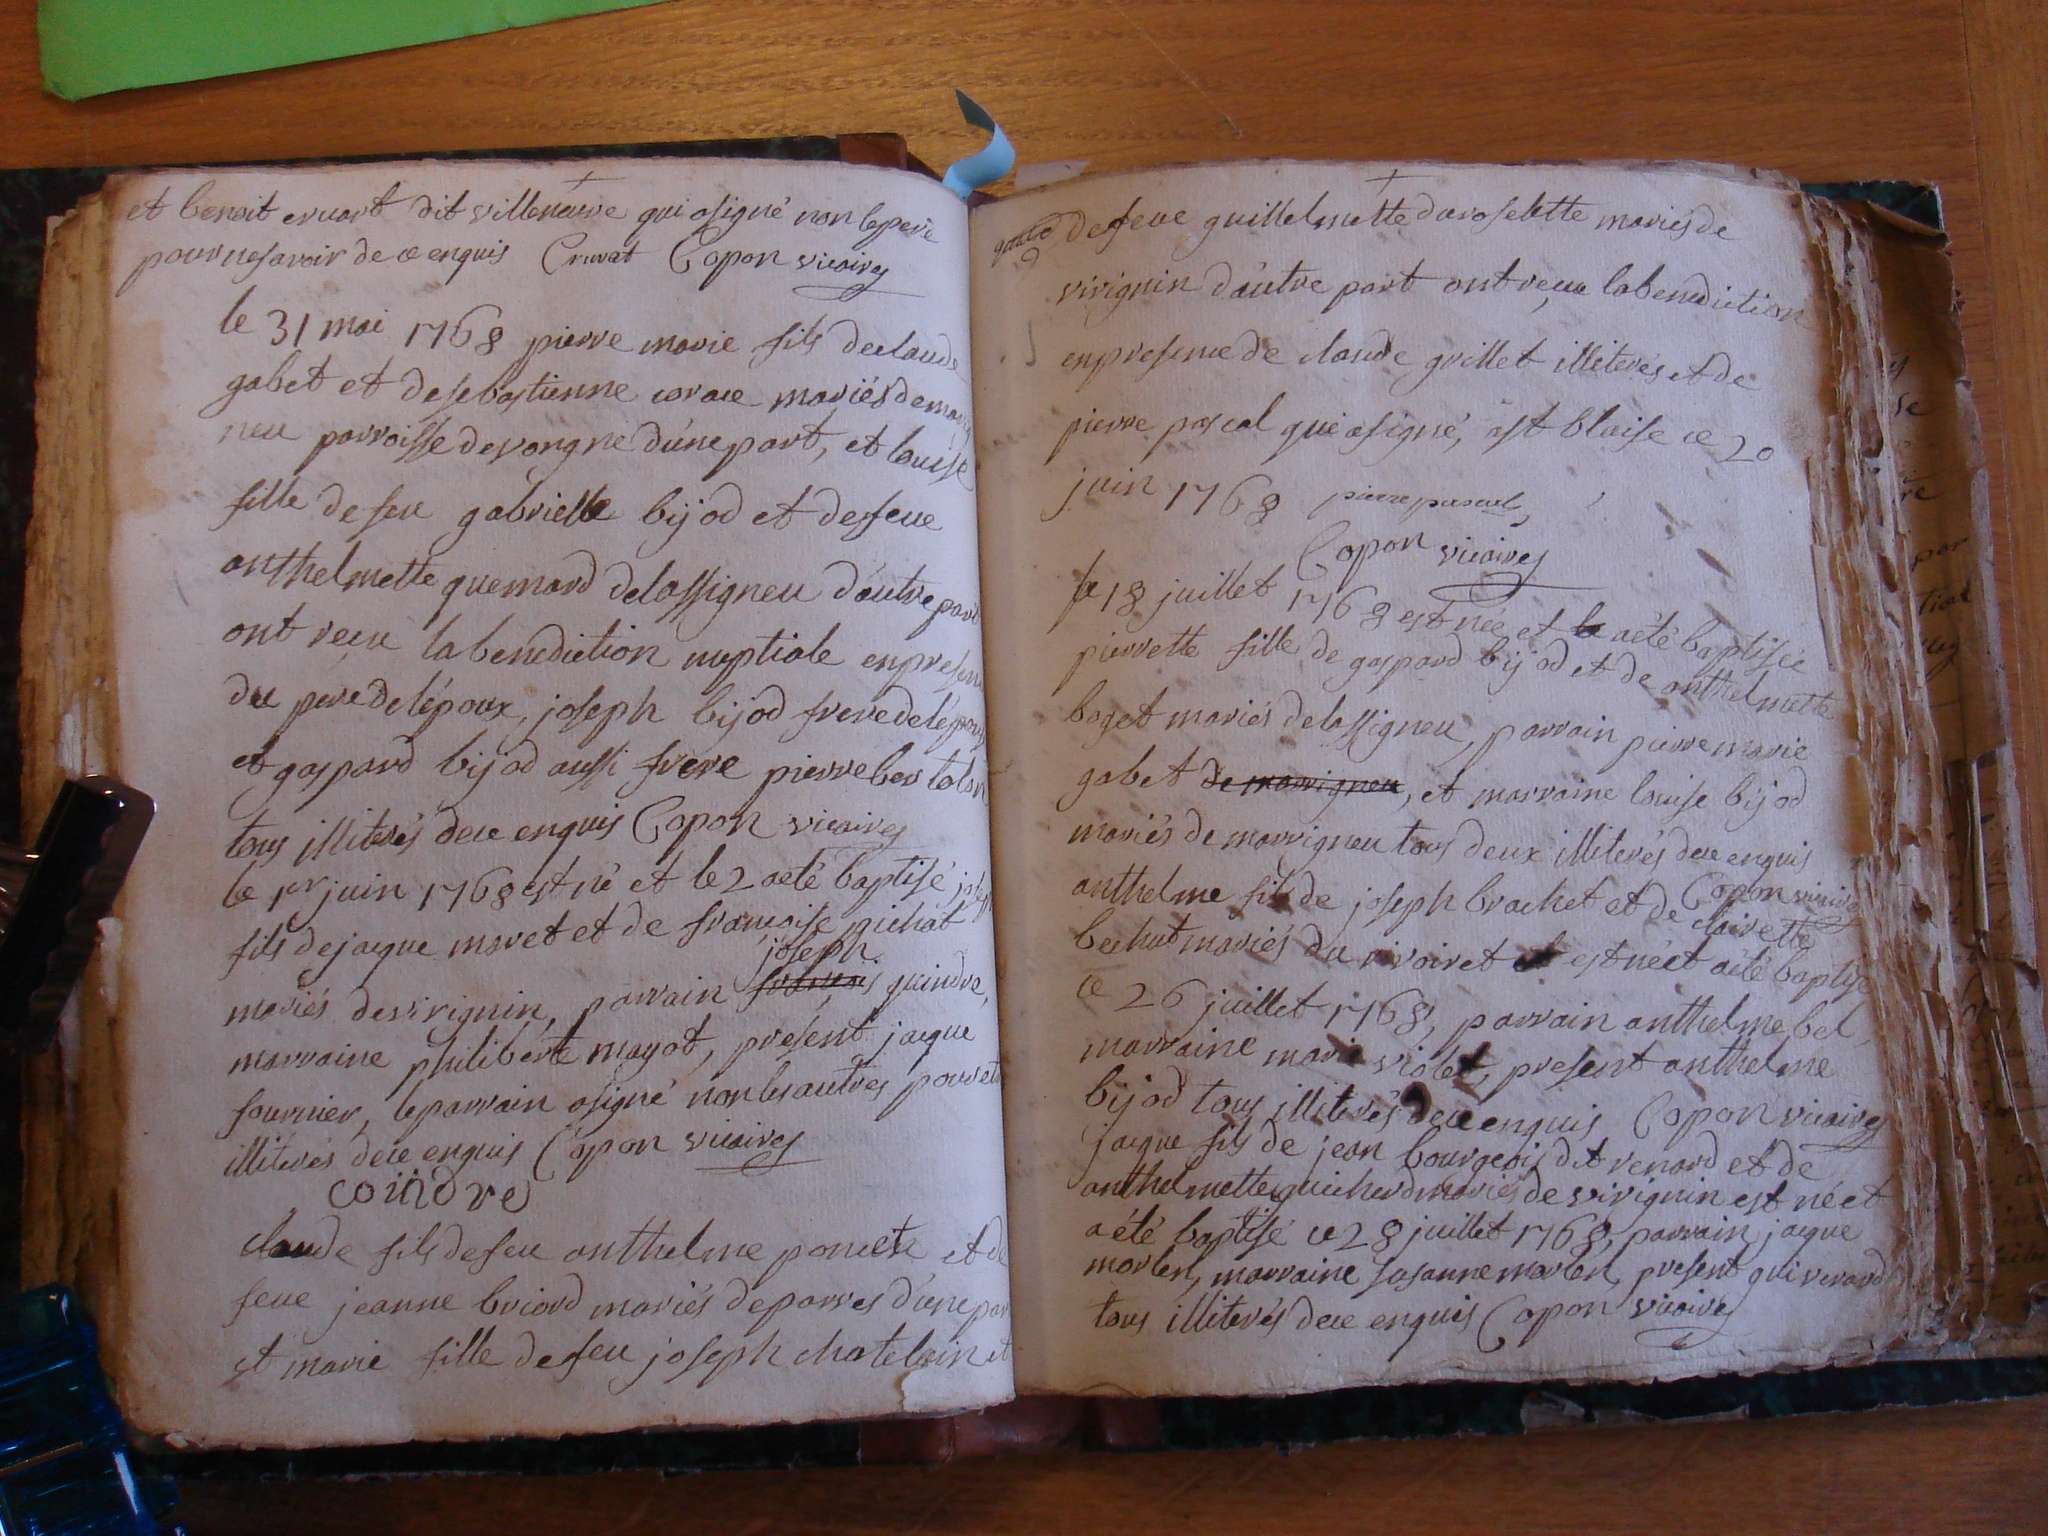 et benoit cruvat dit villeneuve qui asigné non le pere
pour ne savoir de ce enquis Cruvat Copon vicaire
le 31 mai 1768 pierre marie fils de claude
gabet et de sebastienne corace mariés de
neu parroisse de vongne d'une part, et louise
fille de feu gabrielle bijod et de feue
anthelmette quemard de lassigneu d'autre part
ont reçu la benediction nuptiale en presence
du pere de l'époux, joseph bijod frere de l'épouse
et gaspard bijod aussi frere pierre
tous illiterés de ce enquis Copon vicaire
le 1er juin 1768 est né et le 2 a eté baptisé joseph
fils de jacque maret et de françoise pichat
joseph
mariés de virignin, parrain françois quindre,
marraine philiberte mayot, present jacque
fournier, le parrain asigné non les autres pour etre
illiterés de ce enquis Copon vicaire
coindre
claude fils de feu anthelme poncet et de
feue jeanne briord mariés de parves d'une part
et marie fille de feu joseph chatelain et
de feue guillelmette duroselette mariés de
virignin d'autre part ont reçu la benediction
en presence de claude grillet illiterés et de
pierre pascal qui asigné, a st blaise ce 20
juin 1768 pierre pascal
Copon vicaire
le 18 juillet 1768 est née et a été baptisée
pierrette fille de gaspard bijod et de anthelmette
bozet mariés de lassigneu, parrain pierre marie
gabet de marrigneu, et marraine louise bijod
mariés de marrigneu tous deux illiterés de ce enquis
Copon vicaire
anthelme fils de joseph brachet et de clairette
bechut mariés du rivoiret est né et a été baptisé
ce 26 juillet 1768, parrain anthelme bel,
marraine marie violet, present anthelme
bijod tous illiterés de ce enquis Copon vicaire
jacque fils de jean bourgeois dit renard et de
anthelmette guicherd mariés de virignin est né et
a été baptisé ce 28 juillet 1768, parrain jacque
marlen, marraine susanne marlen, present gui renard
tous illiterés de ce enquis Copon vicaire